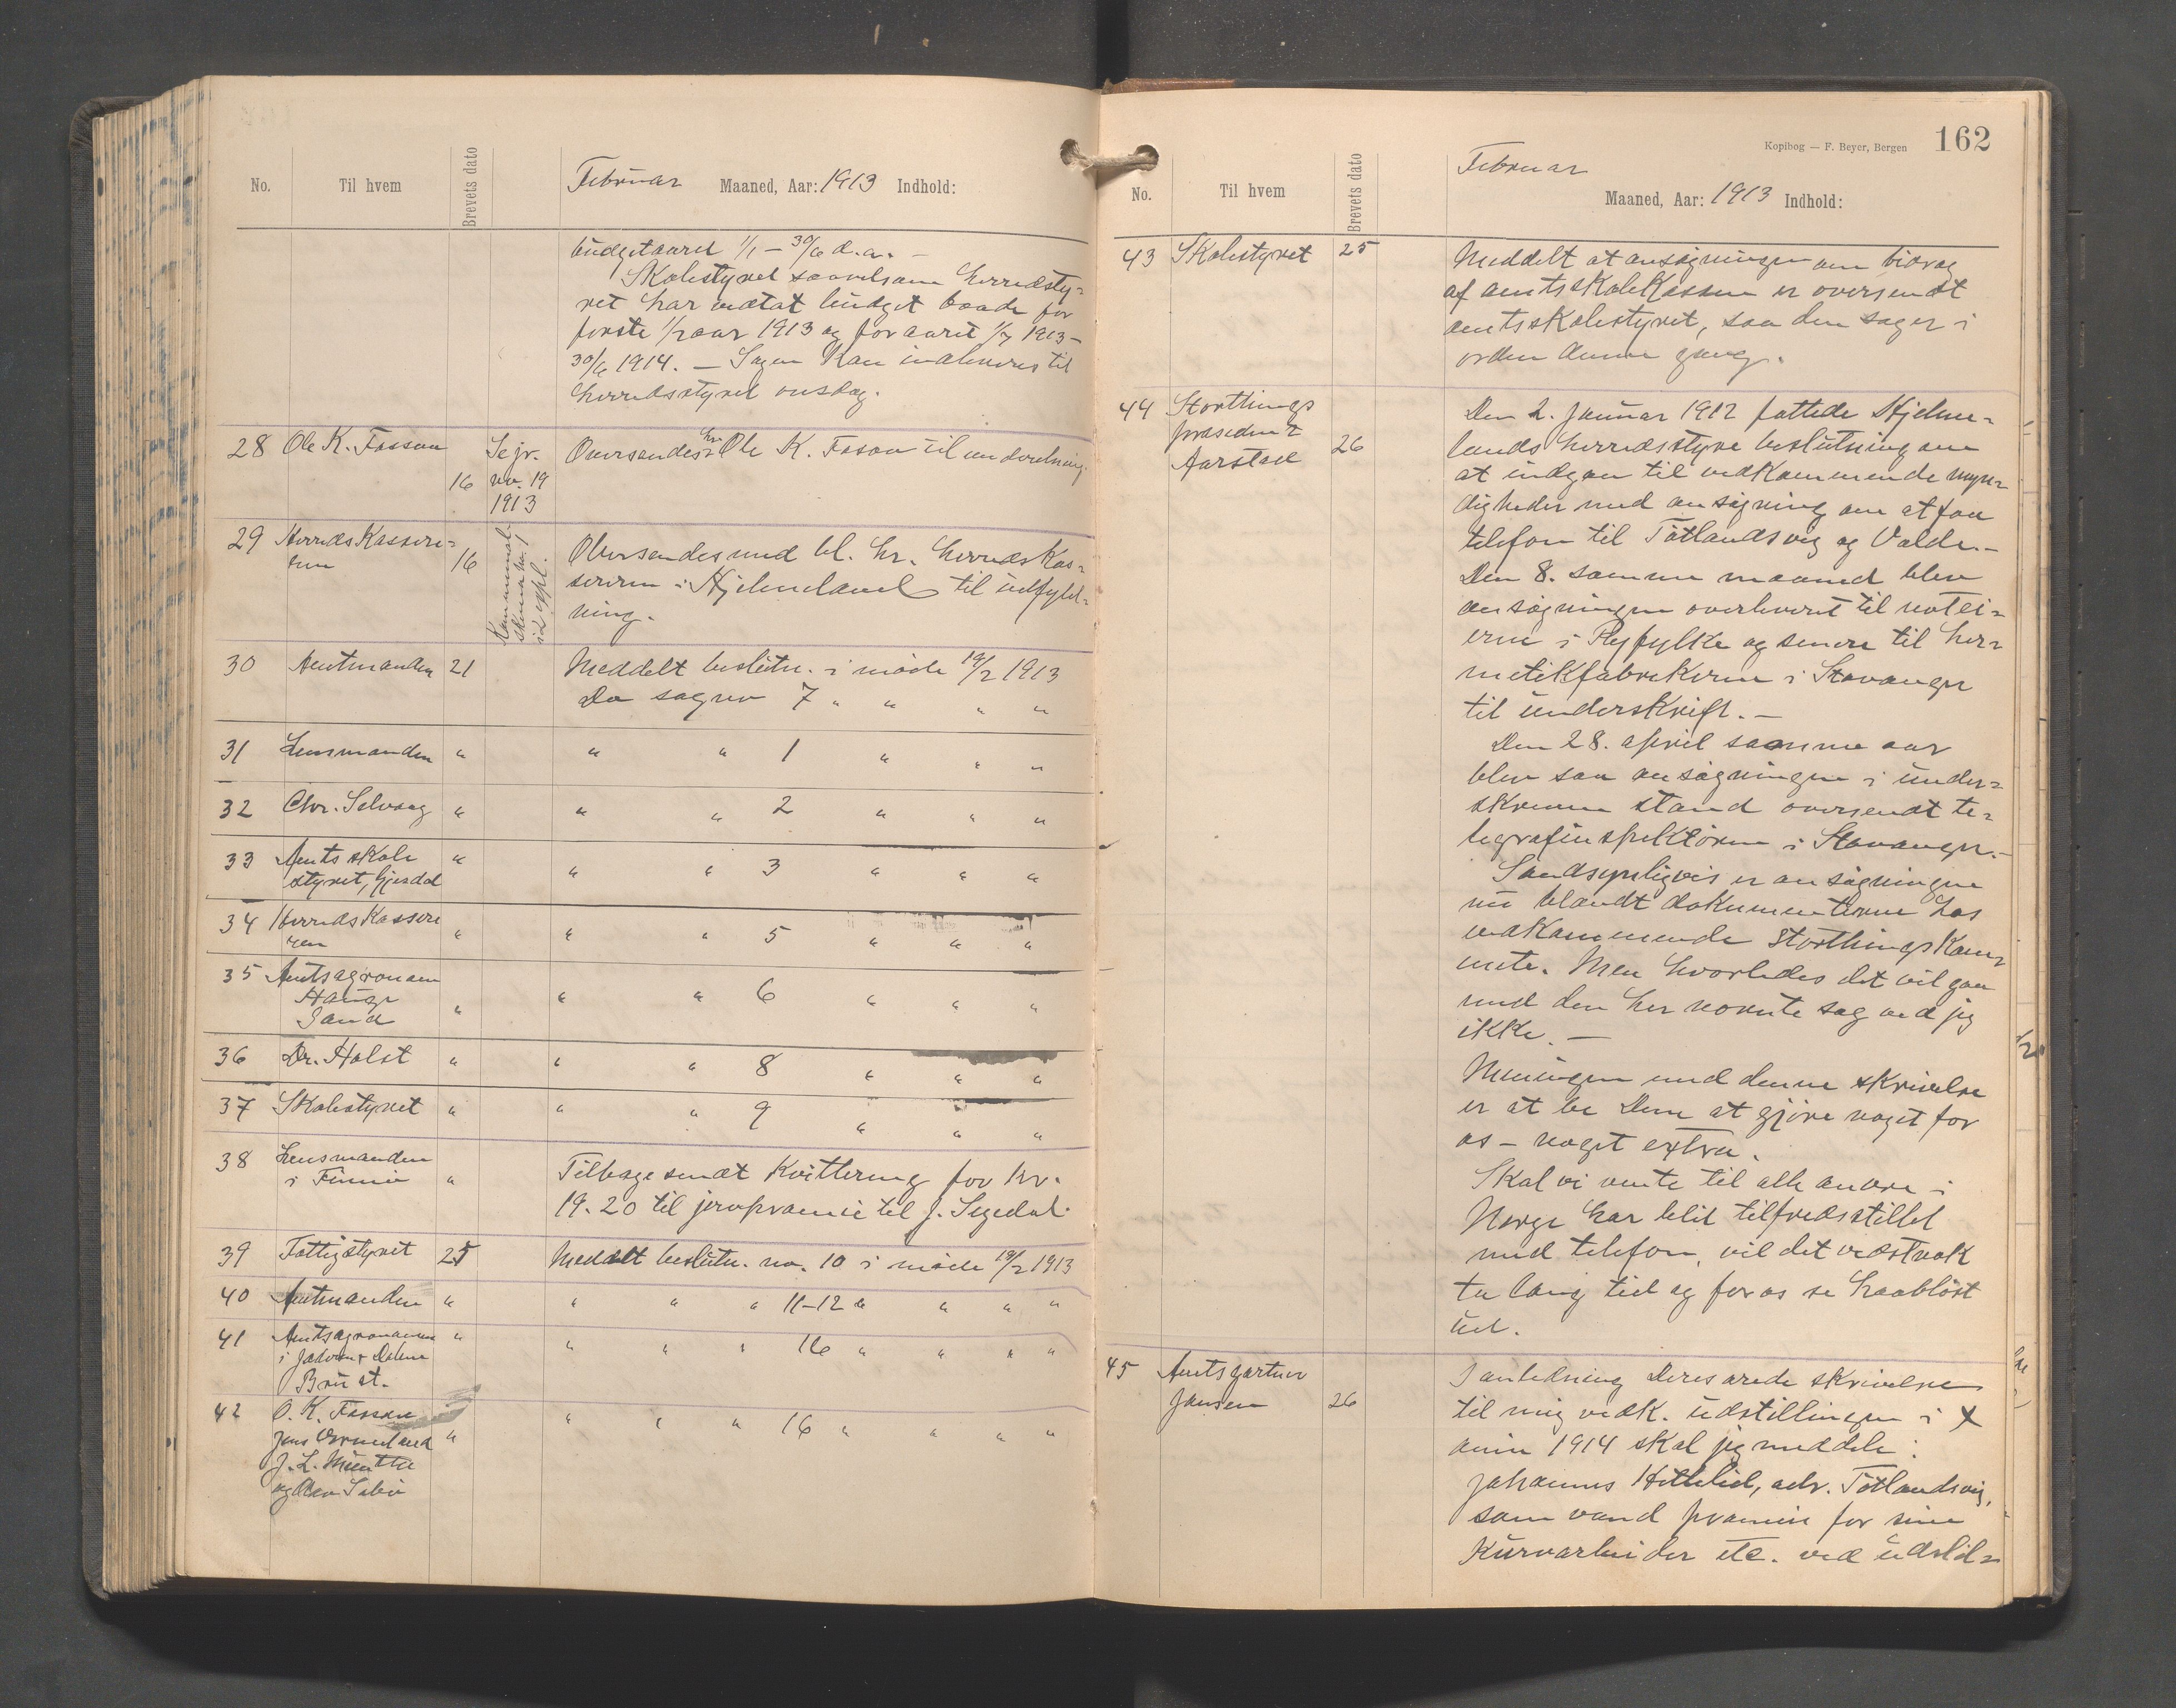 No. Til hvem Brevets dato Februar Maaned, Aar: 1913 Indhold:
budgetaaret 1/1 – 30/6 d.a. –
Skolestyret saavelsom herredsty-
ret har vedtat budget baade for
første 1/2 aar 1913 og for aaret 1/7 1913 –
30/6 1914. – Sagen kan indleveres til
herredsstyret onsdag.
28 Ole K. Fosson 16 Sejr. no. 19 1913 Oversendes hr. Ole K. Fosson til underretning.
29 Herredskassere-
ren 16 Kommunal-
skema no. 1
i 2 expl.
Oversendes med bl. hr. herredskas-
sereren i Hjelmeland til udfyld-
ning.
30 Amtmanden 21 Meddelt beslutn. i møde 19/2 1913
Do sag no 7 " " " "
31 Lensmanden " " " 1 " " "
32 Chr. Selvaag " " " 2 " " "
33 Amtsskole
styret, Gjesdal " " " 3 " " "
34 Herredskassere
ren " " " 5 " " "
35 Amtsagronom
Hauge
Sand " " " 6 " " "
36 Dr. Holst " " " 8 " " "
37 Skolestyret " " " 9 " " "
38 Lensmanden
i Finnø " Tilbagesendt kvittering for kr.
19.20 til jervpræmie til J. Segedal.
39 Fattigstyret 25 Meddelt beslutn. no. 10 i møde 19/2 1913
40 Amtmanden " " " " 11-12 " " " "
41 Amtsagronomen
i Jæderen & Dalene
Bru st. " " " " 16 " " " "
42 O. K. Fosson
Jens
J. L. Munthe
og " " " " 16 " " " "
Kopibog — F. Beyer, Bergen 162
No. Til hvem Brevets dato Februar
Maaned, Aar: 1913 Indhold:
43 Skolestyret 25 Meddelt at ansøgningen om bidrag
af amtsskolekassen er oversendt
amtsskolestyret, saa den sag er i
orden denne gang.
44 Storthings
præsident
Aarstad 26
Den 2. januar 1912 fattede Hjelme-
lands herredsstyre beslutning om
at indgaa til vedkommende myn-
digheder med ansøgning om at faa
telefon til Tøtlandsvig og Valde. –
Den 8. samme maaned blev
ansøgningen overleveret til notei-
erne i Ryfylke og senere til her-
metikfabrikerne i Stavanger
til underskrift. –
Den 28. april samme aar
blev saa ansøgningen i under-
skreven stand oversendt te-
legrafinspektøren i Stavanger. –
Sandsynligvis er ansøgningen
nu blandt dokumenterne hos
vedkommende storthingskom-
mite. Men hvorledes det vil gaa
med den her nævnte sag ved jeg
ikke. –
Meningen med denne skrivelse
er at be Dem at gjøre noget for
os – noget extra.
Skal vi vente til alle andre i
Norge har blit tilfredsstillet
med telefon, vil det vedst nok
ta lang tid og for os se haabløst
ud.
45 Amtsgartner
Jansen 26
I anledning Deres ærede skrivelse
til mig vedk. udstillingen i X
ania 1914 skal jeg meddele:
Johannes Hetlelid, adr. Tøtlandsvig,
som vand præmie for sine
kurvarbeider etc. ved udstil-